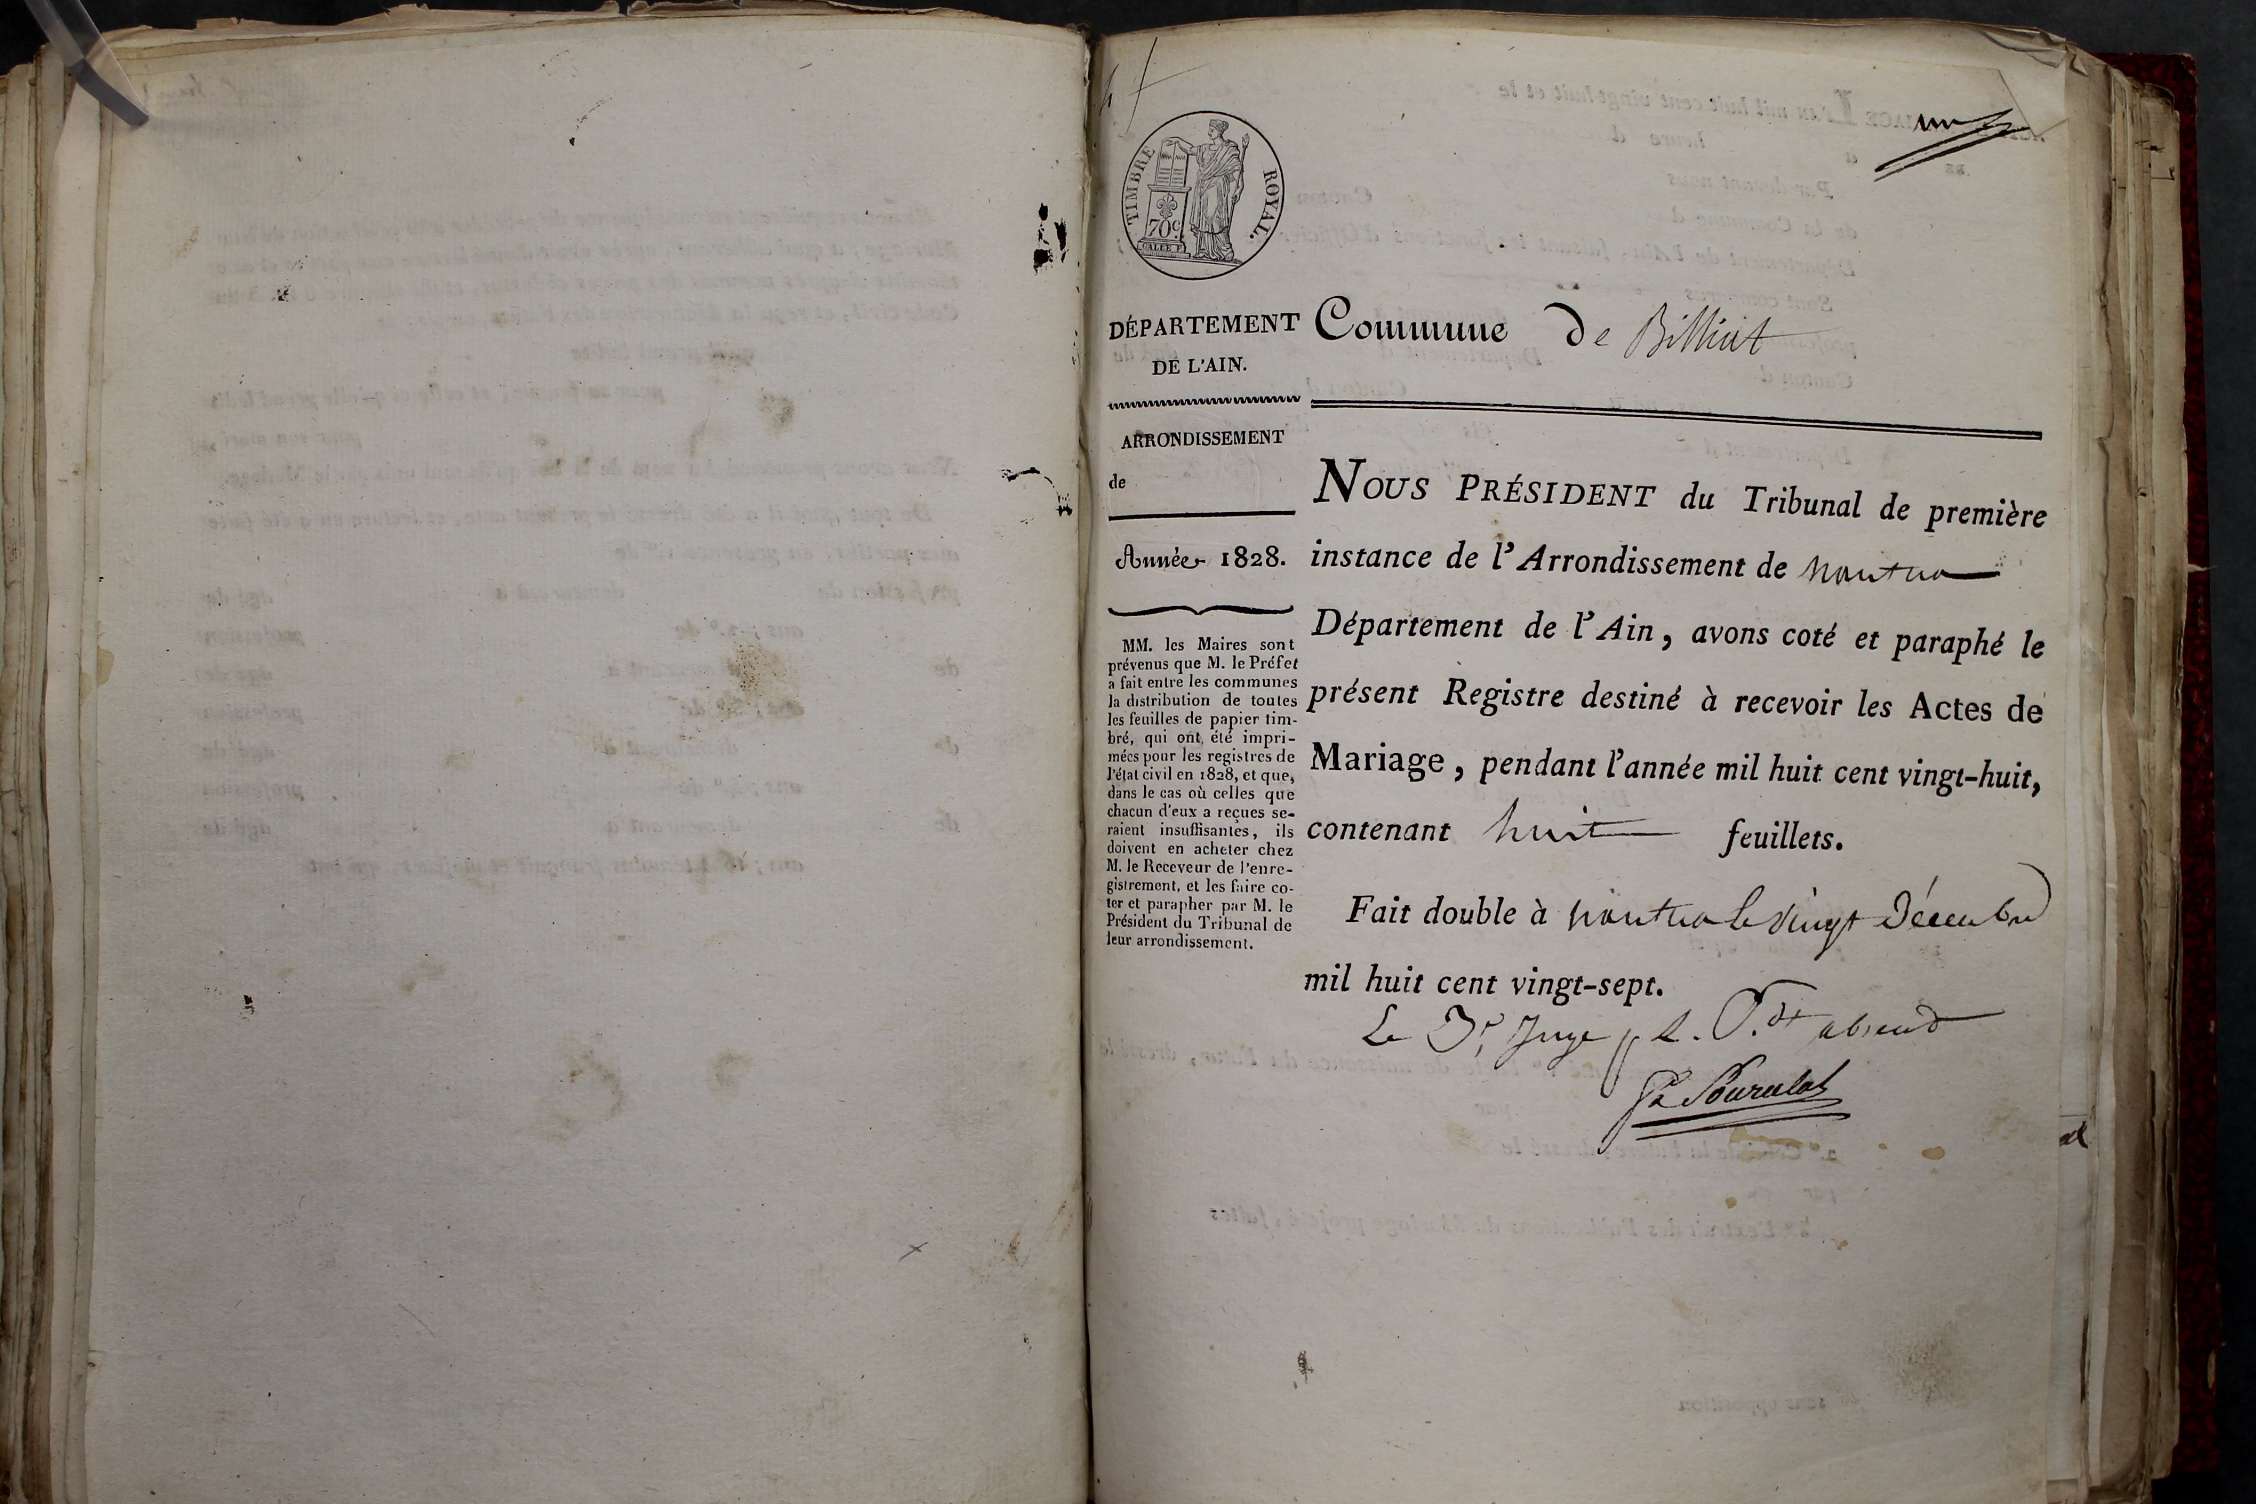 un
TIMBRE ROYAL.
70c
DÉPARTEMENT
DE L'AIN.
ARRONDISSEMENT
de
Année 1828.
MM. les Maires sont
prévenus que M. le Préfet
a fait entre les communes
la distribution de toutes
les feuilles de papier tim-
bré, qui ont été impri-
mées pour les registres de
l'état civil en 1828, et que,
dans le cas où celles que
chacun d'eux a reçues se-
raient insuffisantes, ils
doivent en acheter chez
M. le Receveur de l'enre-
gistrement, et les faire co-
ter et parapher par M. le
Président du Tribunal de
leur arrondissement.
Commune de Billiat
NOUS PRÉSIDENT du Tribunal de première
instance de l'Arrondissement de nantua
Département de l'Ain, avons coté et paraphé le
présent Registre destiné à recevoir les Actes de
Mariage, pendant l'année mil huit cent vingt-huit,
contenant huit feuillets.
Fait double à nantua le vingt Décembre
mil huit cent vingt-sept.
Le Juge p. le P.dt absent